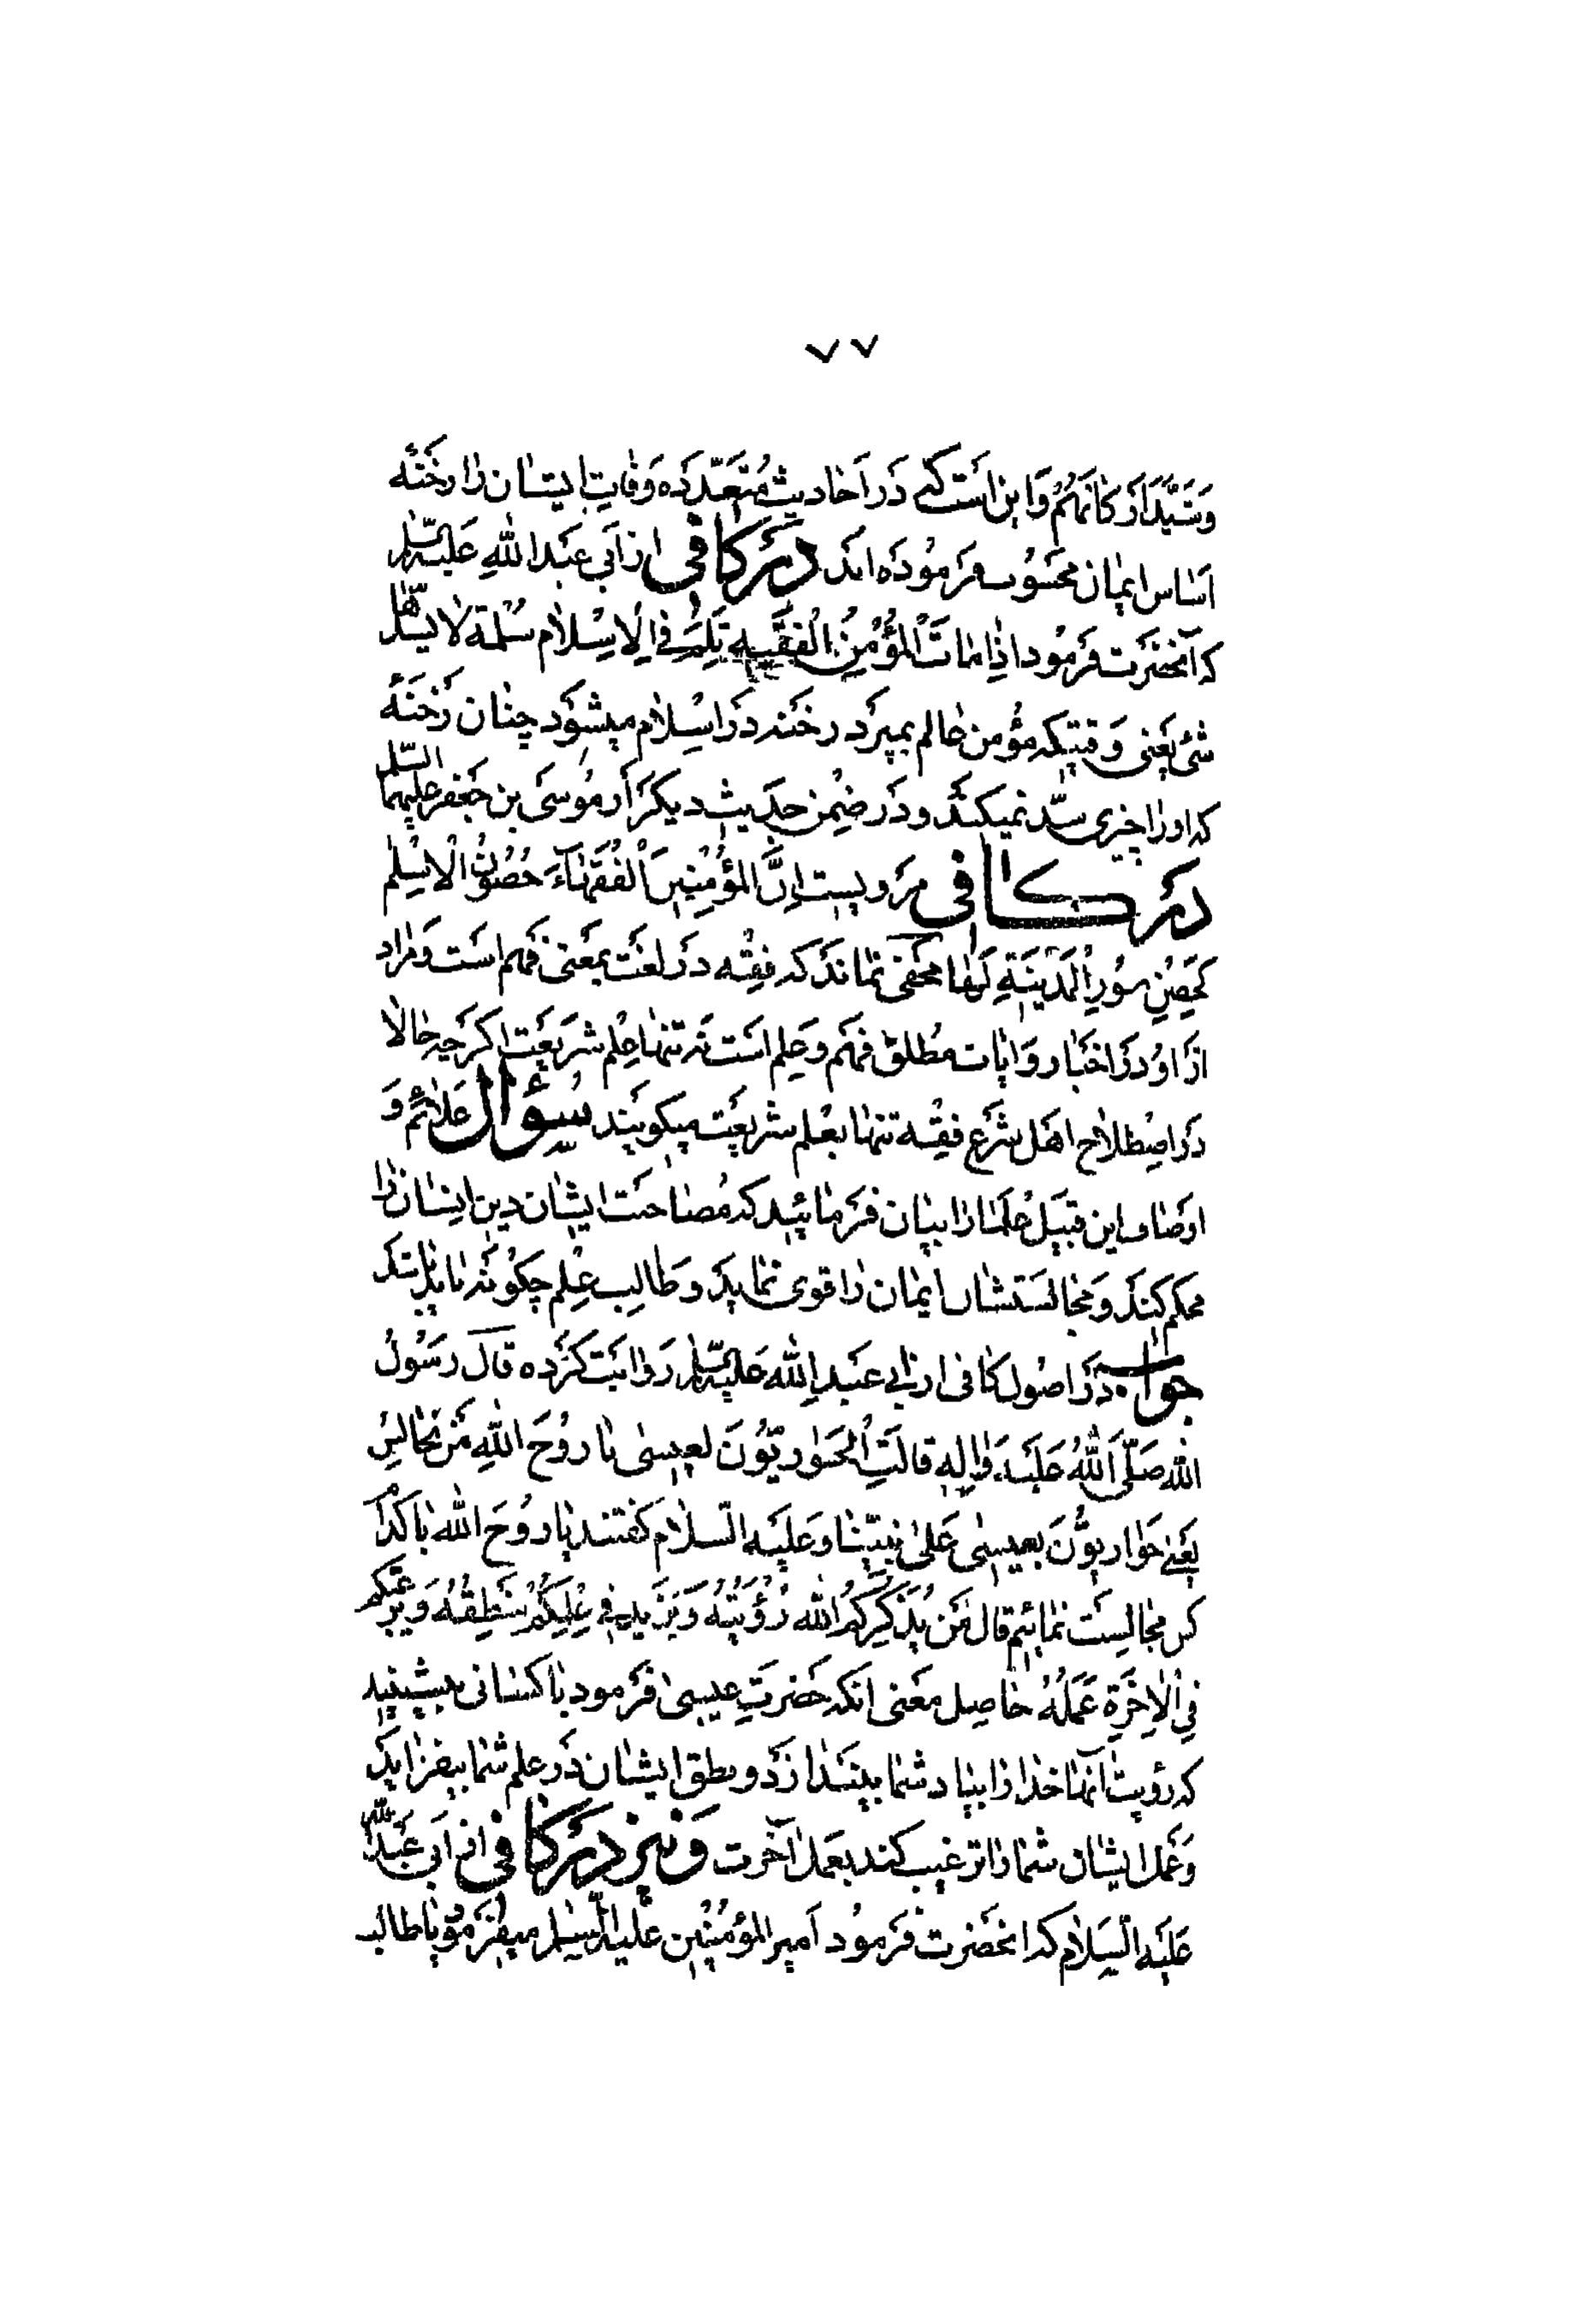 ۷۷
وَشَیَّدَ اَرْکانَهُمْ وَاین است کی دَر اَحادیث مُتَعَدِّدَه وَفات ایشان را رخنَهٔ
اَساس ایمان محسُوب فرَمُودَه اند دَرکافی از اَبی عَبدالله عَلیه السّلم
که آنحضرَت فرَمُود اِذا ماتَ الْمُؤْمِنُ الْفَقیهِ ثَلِمَ فِی الْاِسْلام ثُلمة لا یسدّها
شئ یَعنی وَقتیکه مؤمن عالم بمیرَد رخنه دَر اسْلام میشوَد چنان رَخنَهٔ
که اورا چیزی سدّ نمیکند و دَر ضِمن حدیث دیگر اَز مُوسَی بن جَعفر علیهما السّلم
دَر کافی مرَویست اِنَّ المؤْمِنینَ الْفُقَهاءَ حُصُونُ الْاسْلم
کَحِصْنِ سُورِ الْمَدینَةِ لَها مخفی نماند که فِقْه دَر لغت بمَعنی فهم است وَ مراد
از او دَر اخبار وَایات مطلق فهَم و عِلم است نه تنها عِلم شریعَت اکرچه حالا
دَر اصْطلاح اهَل شرَع فِقْه تنها بعْلم شریعَت میکویند سُؤال عَلائم وَ
اوصاف این قبیل عُلما را بیان فرَمائید که مُصاحبَت ایشان دین اینسان را
محکم کند وَ مجالسَتشان ایمان را قوی نماید و طالِب عِلم چکونه باید باشد
جواب دَر اصُول کافی از ابی عَبدالله عَلیه السّلم رَوایَت کرَده قالَ رَسُولُ
الله صَلّی اللهُ عَلَیه وَ الِهِ قالَتِ الْحَوارِیّوُنَ لعیسی یا روُحَ اللهِ مَن نجالِسُ
یَعنی حَواریوُّنَ بعیسی عَلی نَبیّنا وَعَلیَه السّلام کفتند یا روُحَ الله با کدام
کس مجالِسَت نمائیم قال مَن یُذَکِّرُکُمُ الله رُؤْیَتُهُ وَیَزیدُ فی عِلْمِکُمْ مَنْطِقُهُ وَ یُرَغِّبُکم
فِی الْاخِرَةِ عَمَلُهُ حاصِل معَنی انکه حَضرَتِ عیسی فرَمود با کسانی بنشینید
که رؤیت آنها خدا را بیاد شما بیندازَد و نطق ایشان دَر علم شما بیفزاید
وَعَمل ایشان شما را ترغیب کند بعمل آخرت وَ نیز دَر کافی از اَبی عَبدالله
عَلَیه السّلام که انحضرت فرَمُود اَمیر المؤمنین عَلیه السّلم میفرَمود یا طالب